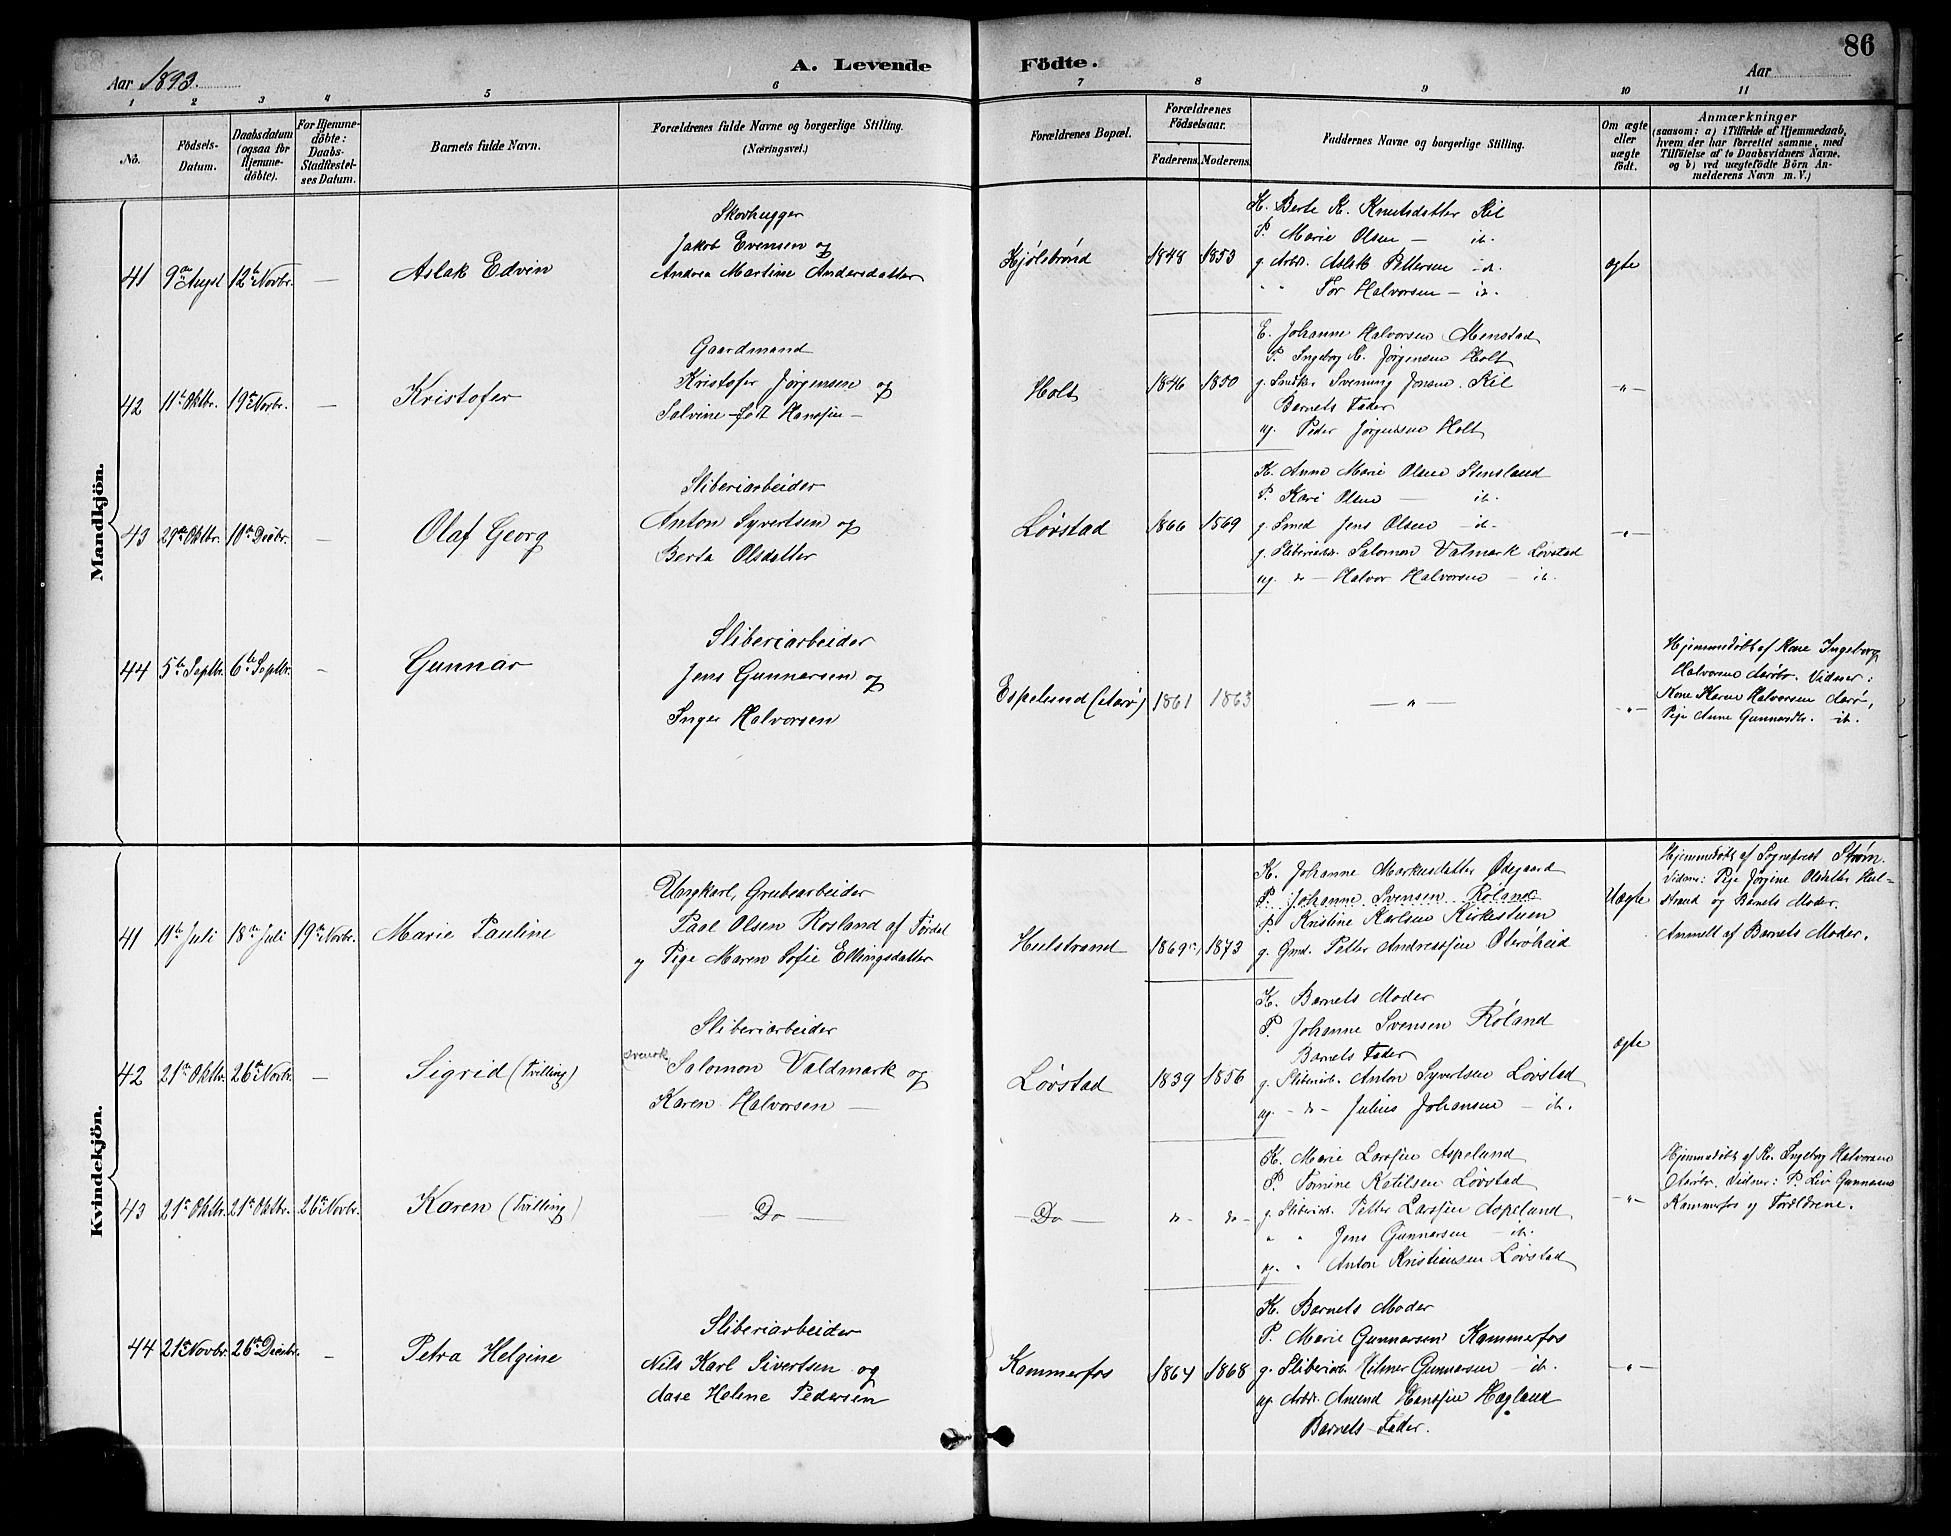 86
Aar 1893.
A. Levende Födte.
Aar
1 2 3 4 5 6 7 8 9 10 11
No.
Födsels-
Datum.
Daabsdatum
(ogsaa for
Hjemme-
döbte).
For Hjemme-
döbte:
Daabs-
Stadfæstel-
ses Datum.
Barnets fulde Navn.
Forældrenes fulde Navne og borgerlige Stilling.
(Næringsvei.)
Forældrenes Bopæl.
Forældrenes
Födselsaar.
Faderens. Moderens.
Faddernes Navne og borgerlige Stilling.
Om ægte
eller
uægte
födt.
Anmærkninger
(saasom: a) i Tilfælde af Hjemmedaab,
hvem der har forrettet samme, med
Tilföielse af to Daabsvidners Navne,
og b) ved uægtefödte Börn An-
melderens Navn m. V.)
Mandkjön.
41 9de Augst 12te Novbr. — Aslak Edvin
Skovhugger
Jakob Evensen og
Andrea Martine Andersdatter
Kjølsbrønd 1848 1853
K. Berte K. Knutsdatter Kil
P. Marie Olsen — ib.
g. Arbd. Aslak Pettersen — ib.
" " Tor Halvorsen — ib.
ægte
42 11te Oktbr. 19de Novbr. — Kristofer
Gaardmand
Kristofer Jørgensen og
Salvine født Hanssen —
Holt 1846 1850
E. Johanne Halvorsen Menstad
P. Ingeborg K. Jørgensen Holt
g. Snedk. Svenning Jonsen Kil
Barnets Fader
ug. Peder Jørgensen Holt
—"—
43 29de Oktbr. 10de Decbr. — Olaf Georg
Sliberiarbeider
Anton Syvertsen og
Berta Olsdatter
Løvstad 1866 1869
K. Anne Marie Olsen Stensland
P. Kari Olsen — ib.
g. Smed Jens Olsen — ib.
g. Sliberiarb. Salomon Valmark Løvstad
ug. do — Halvor Halvorsen — ib.
—"—
44 5te Septbr. 6te Septbr. — Gunnar
Sliberiarbeider
Jens Gunnarsen og
Inger Halvorsen
Espelund (Aarø) 1861 1863
— " —
—"—
Hjemmedøbt af Kone Ingeborg
Halvorsen Aarø. Vidner:
Kone Karen Halvorsen Aarø,
Pige Anne Gunnarsdtr. ib.
Kvindekjön.
41 11te Juli 18de Juli 19de Novbr. Marie Pauline
Ungkarl, Grubearbeider
Paal Olsen Rosland af Tørdal
og Pige Maren Sofie Ellingsdatter
Hulstrand 1869 1873
K. Johanne Markusdatter Ødegaard
P. Johanne Svensen Røland
P. Kristine Karlsen Kirkestuen
g. Gmd. Petter Andreassen Oterøheid
Uægte
Hjemmedøbt af Sogneprest Strøm.
Vidner: Pige Jørgine Olsdatter Hul-
strand og Barnets Moder.
Anmelt af Barnets Moder.
42 21de Oktbr. 26de Novbr. — Sigrid (Tvilling)
Sliberiarbeider
svensk Salomon Valdmark og
Karen Halvorsen —
Løvstad 1839 1856
K. Barnets Moder
P. Johanne Svensen Røland
Barnets Fader
g. Sliberiarb. Anton Syvertsen Løvstad
ug. — do — Julius Johansen — ib.
ægte
43 21de Oktbr. 21de Oktbr. 26de Novbr. Karen (Tvilling)
— Do —
— Do — do — do —
K. Marie Larssen Aspelund
P. Tomine Ketilsen Løvstad
g. Sliberiarb. Petter Larssen Aspelund
" " Jens Gunnarsen — ib.
ug. " Anton Kristiansen Løvstad
—"—
Hjemmedøbt af Ko. Ingeborg Halvorsen
Aarø. Vidner: P. Liv Gunnarsen
Kammerfos og Forældrene.
44 21de Novbr. 26de Decbr. — Petra Helgine
Sliberiarbeider
Nils Karl Sivertsen og
Aase Helene Pedersen
Kammerfos 1864 1868
K. Barnets Moder
P. Marie Gunnarsen Kammerfos
g. Sliberiarb. Hilmer Gunnarsen — ib.
ug. Arbd. Amund Hanssen Hægland
Barnets Fader.
—"—